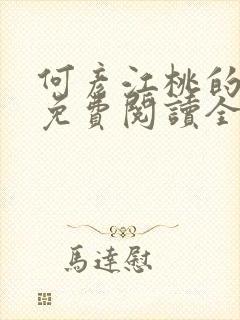 何彦江桃的
免費閱讀全
馬達慰